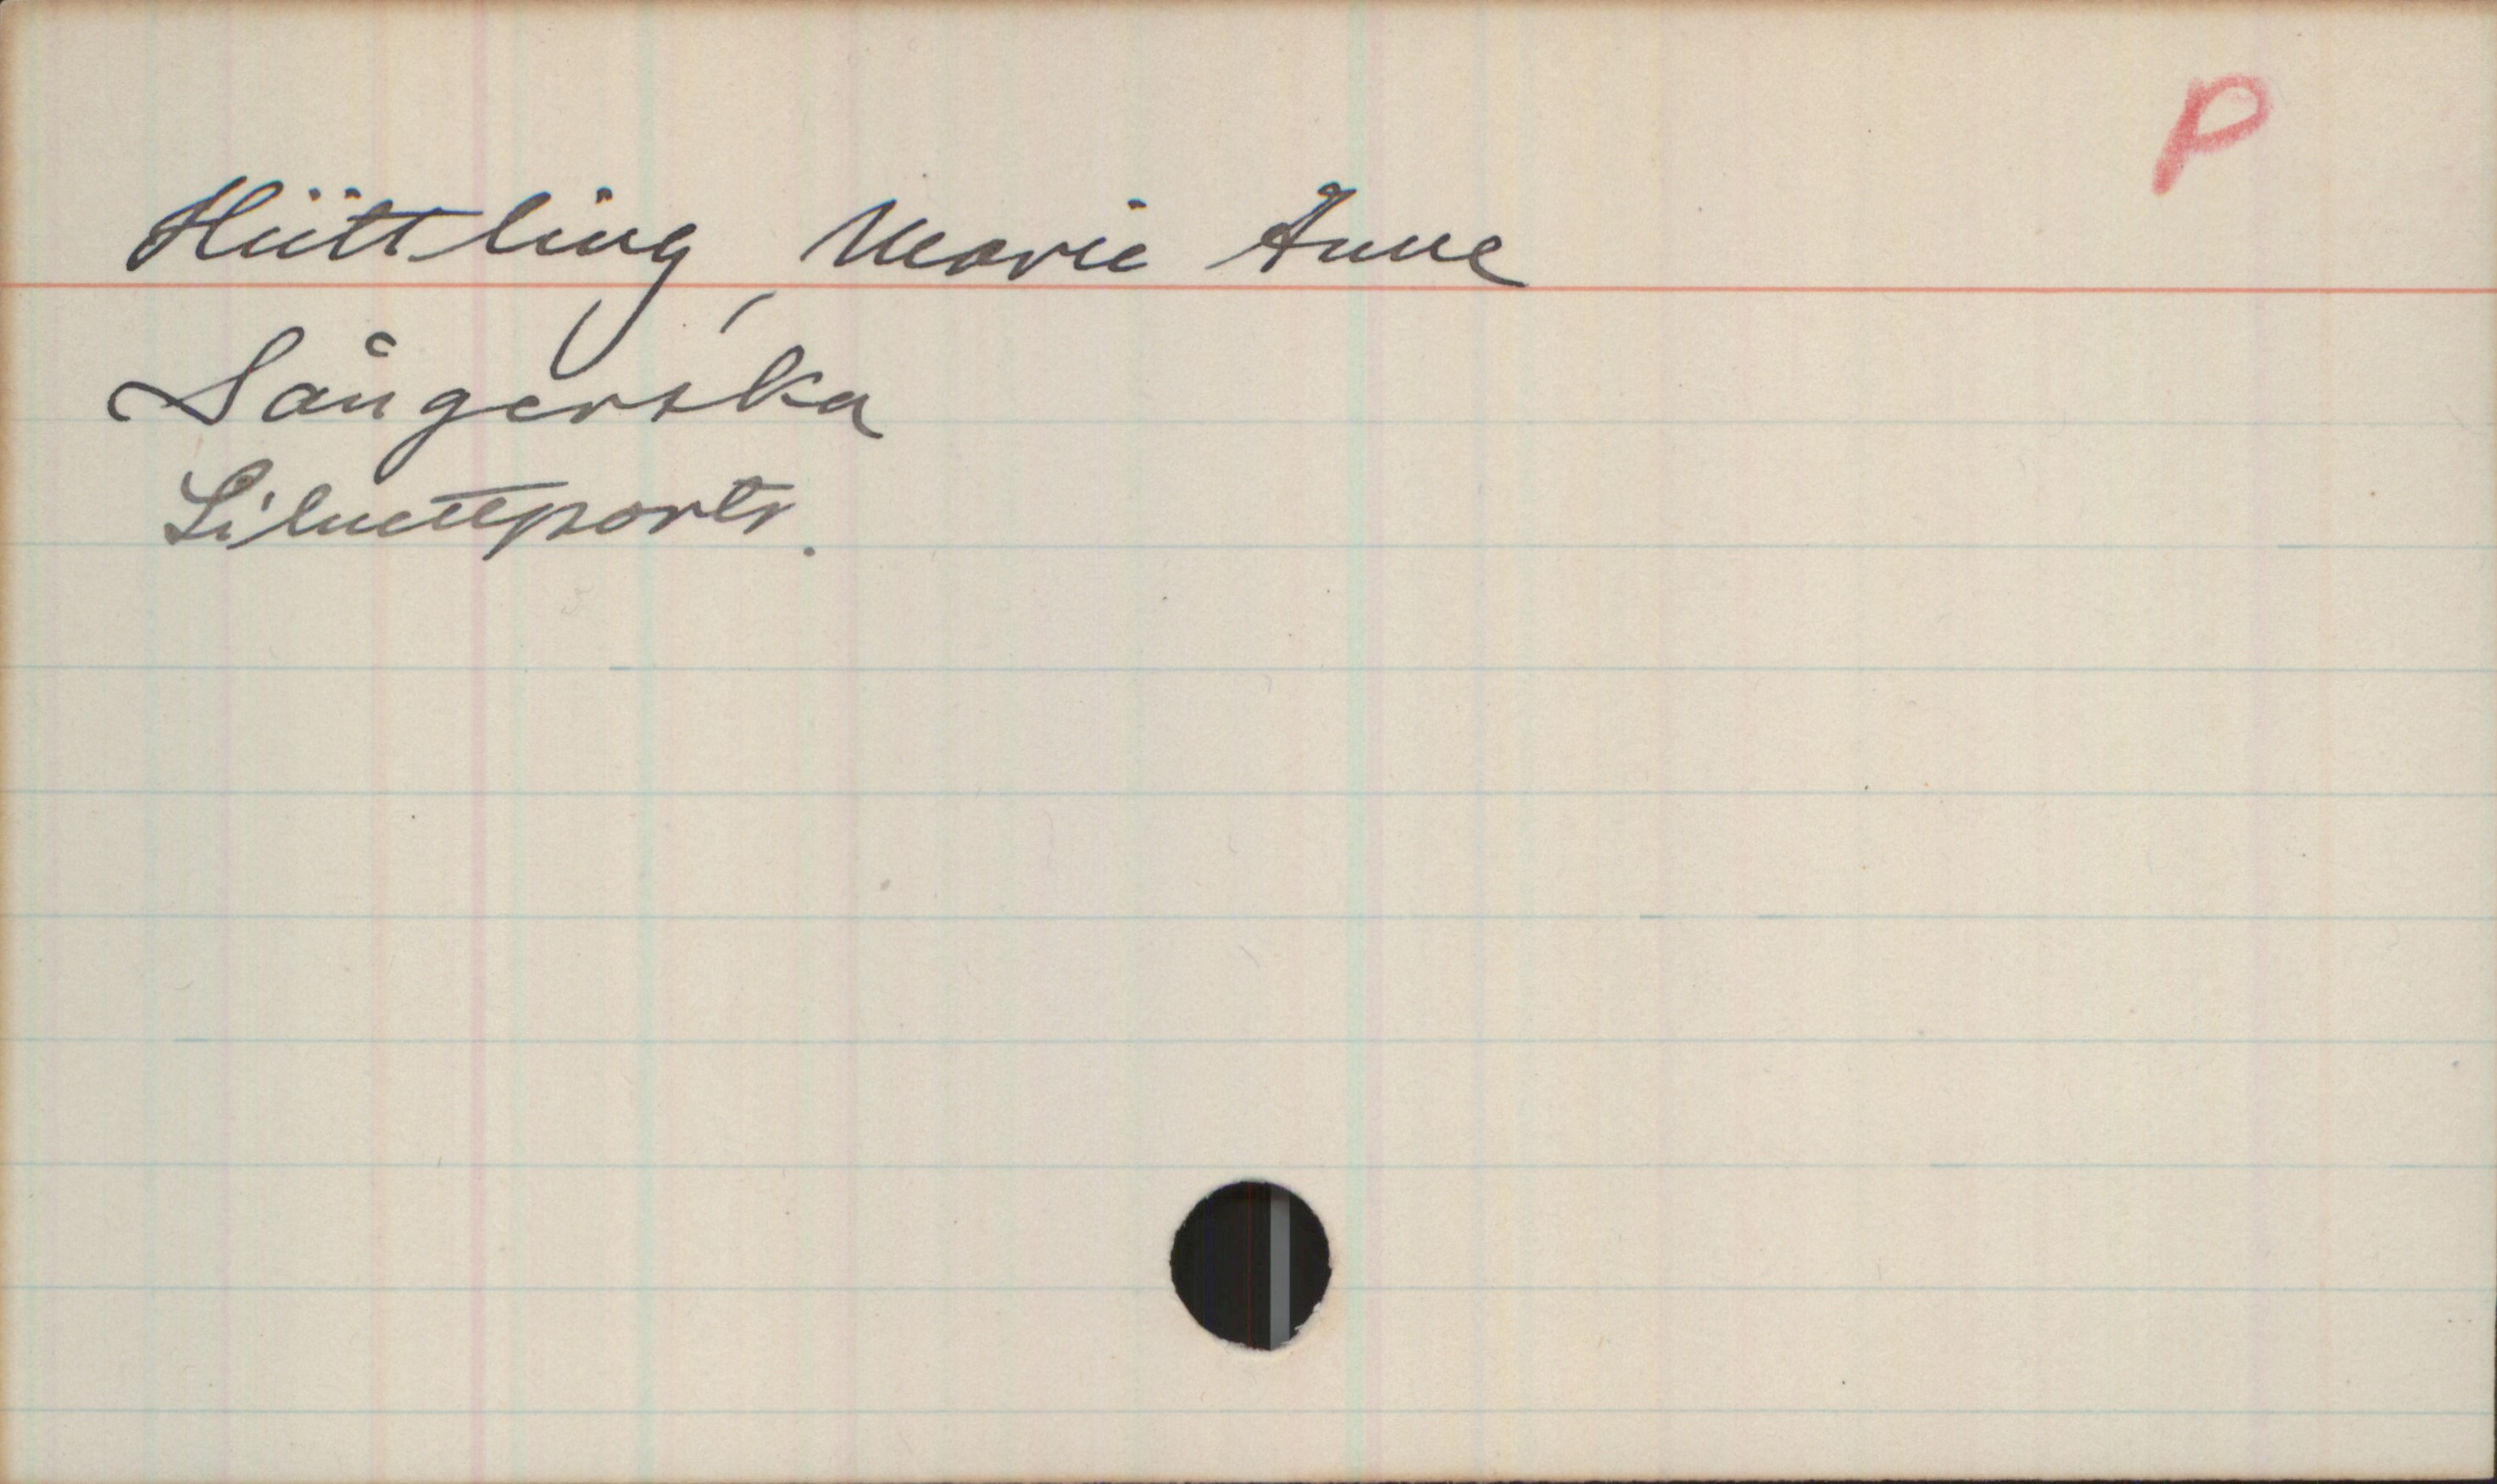 P
Hüttling, Marie Anne
Sångerska
Siluettportr.